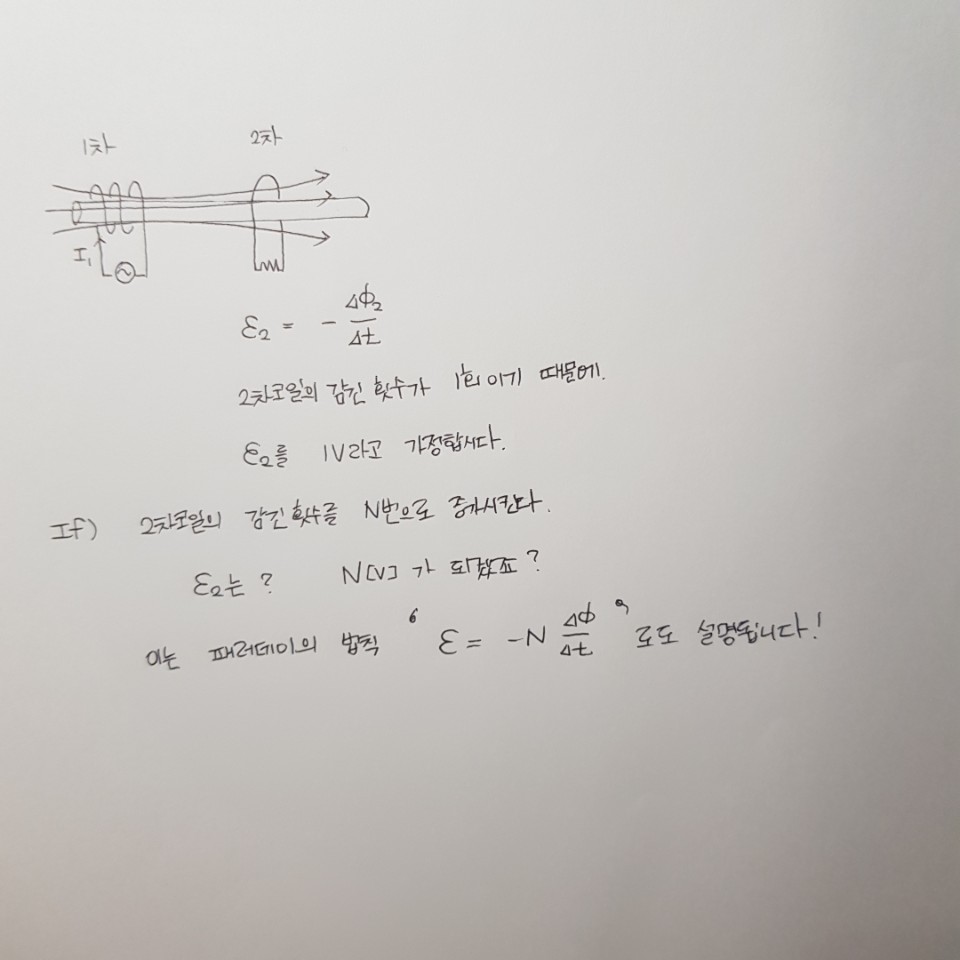 1차 2차
I₁
ε₂ = - Δϕ₂/Δt
2차코일의 감긴 횟수가 1회 이기 때문에.
ε₂를 1V라고 가정합시다.
If) 2차코일의 감긴횟수를 N번으로 증가시킨다.
ε₂는? N[V]가 되겠죠?
이는 패러데이의 법칙 ‘ε = -N Δϕ/Δt’로도 설명됩니다!